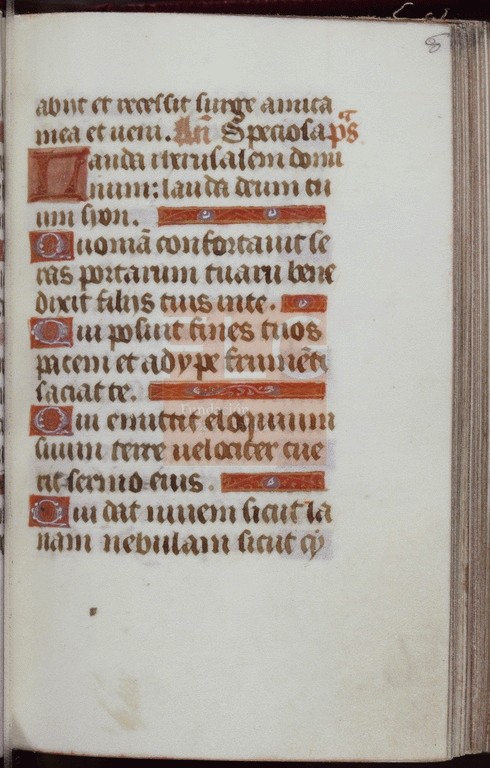 8
abijt et recessit surge amica
mea et ueni. Añ Speciosa p̄s
Lauda iherusalem domi
num: lauda deum tu
um syon.
Quoniā confortauit se
ras portarum tuarū bene
dixit filijs tuis in te.
Qui posuit fines tuos
pacem et adype frumēti
saciat te.
Qui emittit eloquium
suum terre uelociter cur
rit sermo eius.
Qui dat niuem sicut la
nam nebulam sicut cy
Fundación